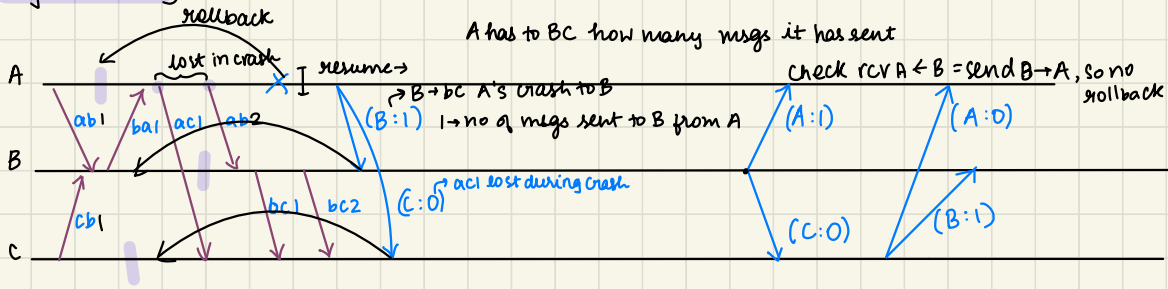 rollback
A has to BC how many msgs it has sent
lost in crash
resume→
check rcv A ← B = send B→A, so no
rollback
A
B→bc A's crash to B
ab1
ba1
ac1
ab2
(B:1)
1→no of msgs sent to B from A
(A:1)
(A:0)
B
ac1 lost during crash
cb1
bc1
bc2
(C:0)
(C:0)
(B:1)
C